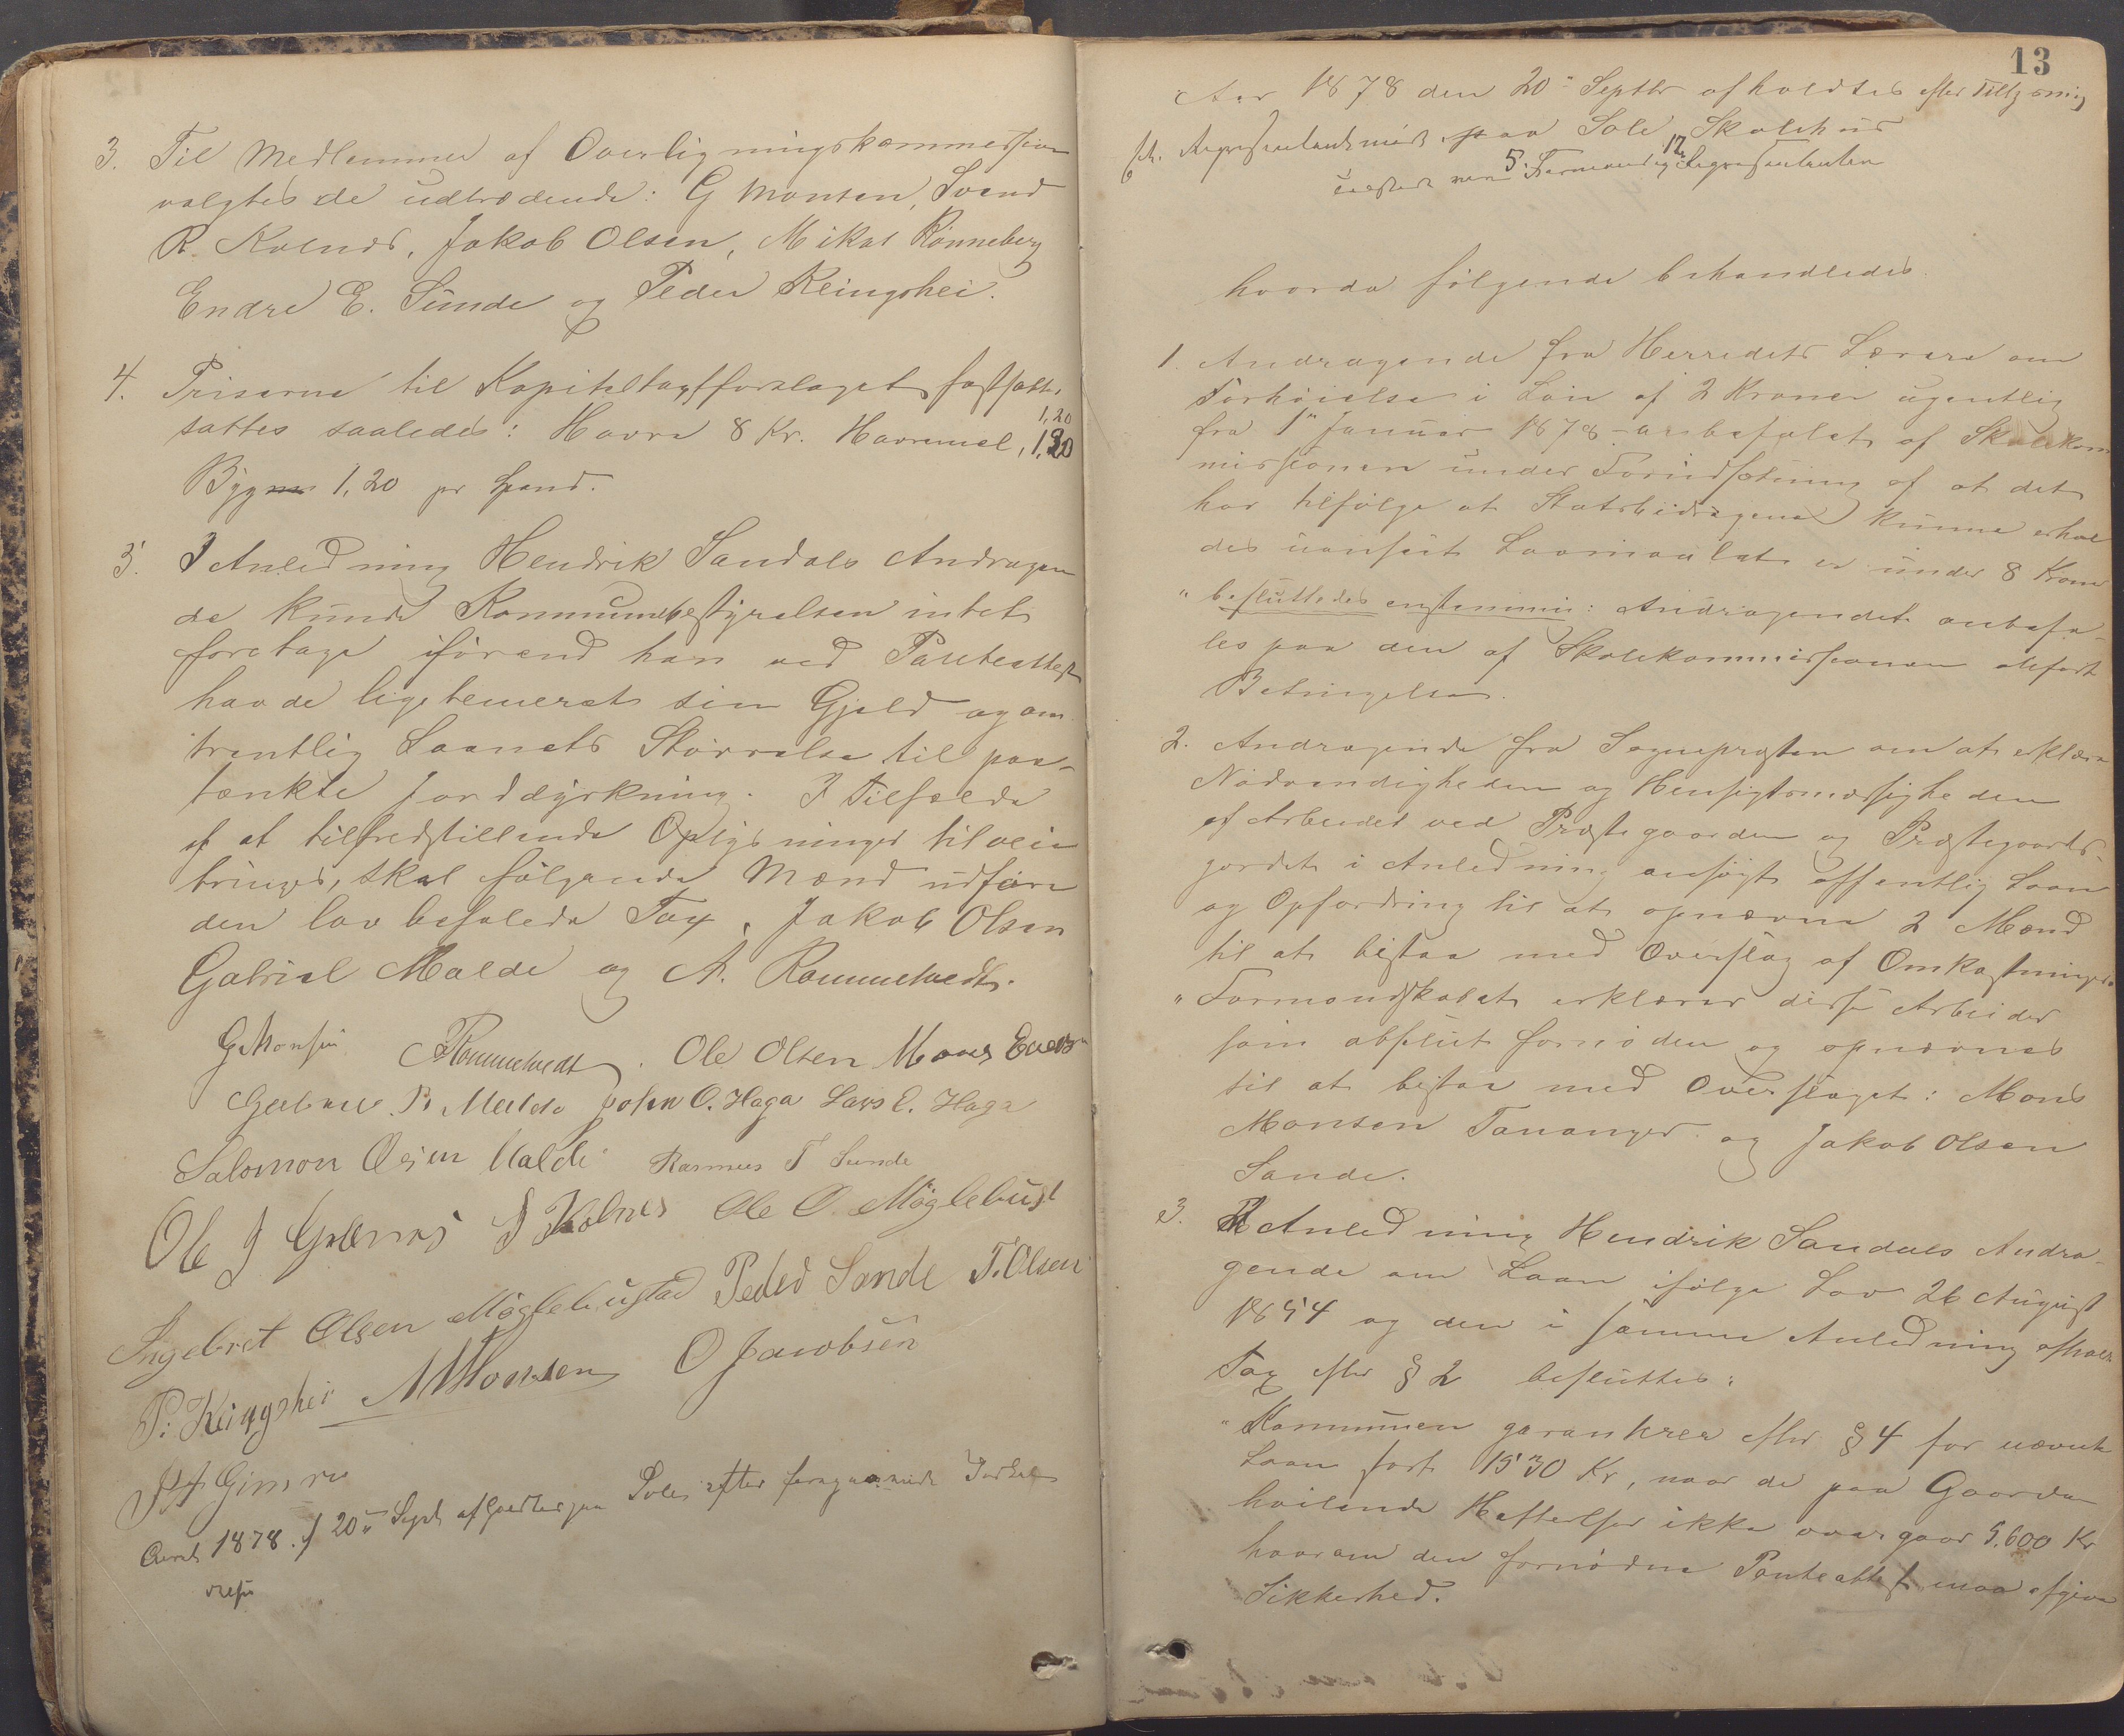 3. Til Medlemmer af Overligningskommission
valgtes de udtrædende: G Monsen, Svend
R. Kolnes, Jakob Olsen, Mikal Rönneberg
Endre E. Sunde og Peder Reingshei.
4. Priserne til Kapiteltaxtforslaget fastsatte
1,20
sattes saaledes: Havre 8 Kr. Havremel,
Byg 1,20 pr Spand.
5. I Anledning Hendrik Sandals Andragen
de kunde Kommunebestyrelsen intet
foretage iförend han ved Panteattest
havde ligetemeret sin Gjeld og om
trentlig Laanets Störrelse til paa-
tænkte Jorddyrkning. I Tilfælde
af at tilfredstillende Oplysninger tilveie
bringes, skal fölgende Mænd udföre
den lov befalede Tax, Jakob Olsen
Gabriel Malde og A. Rommetvedt.
GMonsen ARommetvedt. Ole Olsen Mons
Gabriel B. Malde John O. Haga Lars E. Haga
Salomon Olsen Malde Rasmus T Sunde
Ole J Grannes S Kolnes Ole O. Möglebust
Ingebret Olsen Möglebustad Peder Sande T. Olsen
P. Reingshei MMonsen O Jacobsen
Aaret 1878. d 20de Sept. afholdtes paa Sole efter foregaaende
13
Aar 1878 den 20de Septbr afholdtes efter Tillysning
Repræsentantmöde paa Sole Skolehus
5 Formænd og 12 Repræsentanter
hvorda fölgende behandledes.
1. Andragende fra Herredets Lærere om
Forhöielse i Lön af 2 Kroner ugentlig
fra 1ste Januar 1878 - anbefalet af Skolekom
missionen under Forudsætning af at det
har tilfölge at Statsbidragene kunne erhol
des uanseet Lovmaalet er under 8 Kroner
"besluttedes enstemmig: Andragendet anbefa-
les paa den af Skolekommissionen anförte
Betingelse.
2. Andragende fra Sognepresten om at erklære
Nödvendigheden og Hensigtsmæssigheden
af Arbeidet ved Præstegaarden og Præstegaards-
gjerdet i Anledning ansögt offentlig Laan
og Opfordring til at opnævne 2 Mænd
til at bistaa med Overslag af Omkostninger.
"Formandskabet erklærer disse Arbeider
som absolut fornöden og opnævnes
til at bistaa med Overslaget: Mons
Monsen Tananger og Jakob Olsen
Sande.
3. I Anledning Hendrik Sandals Andra-
gende om Laan ifölge Lov 26 August
1854 og den i samme Anledning afholdte
Tax efter § 2 besluttes:
"Kommunen garanterer efter § 4 for nævnte
Laan stort 1530 Kr, naar de paa Gaarden
hvilende Heftelser ikke overgaar 5.600 Kr
hvorom den fornödne Panteattest maa afgive
Sikkerhed.